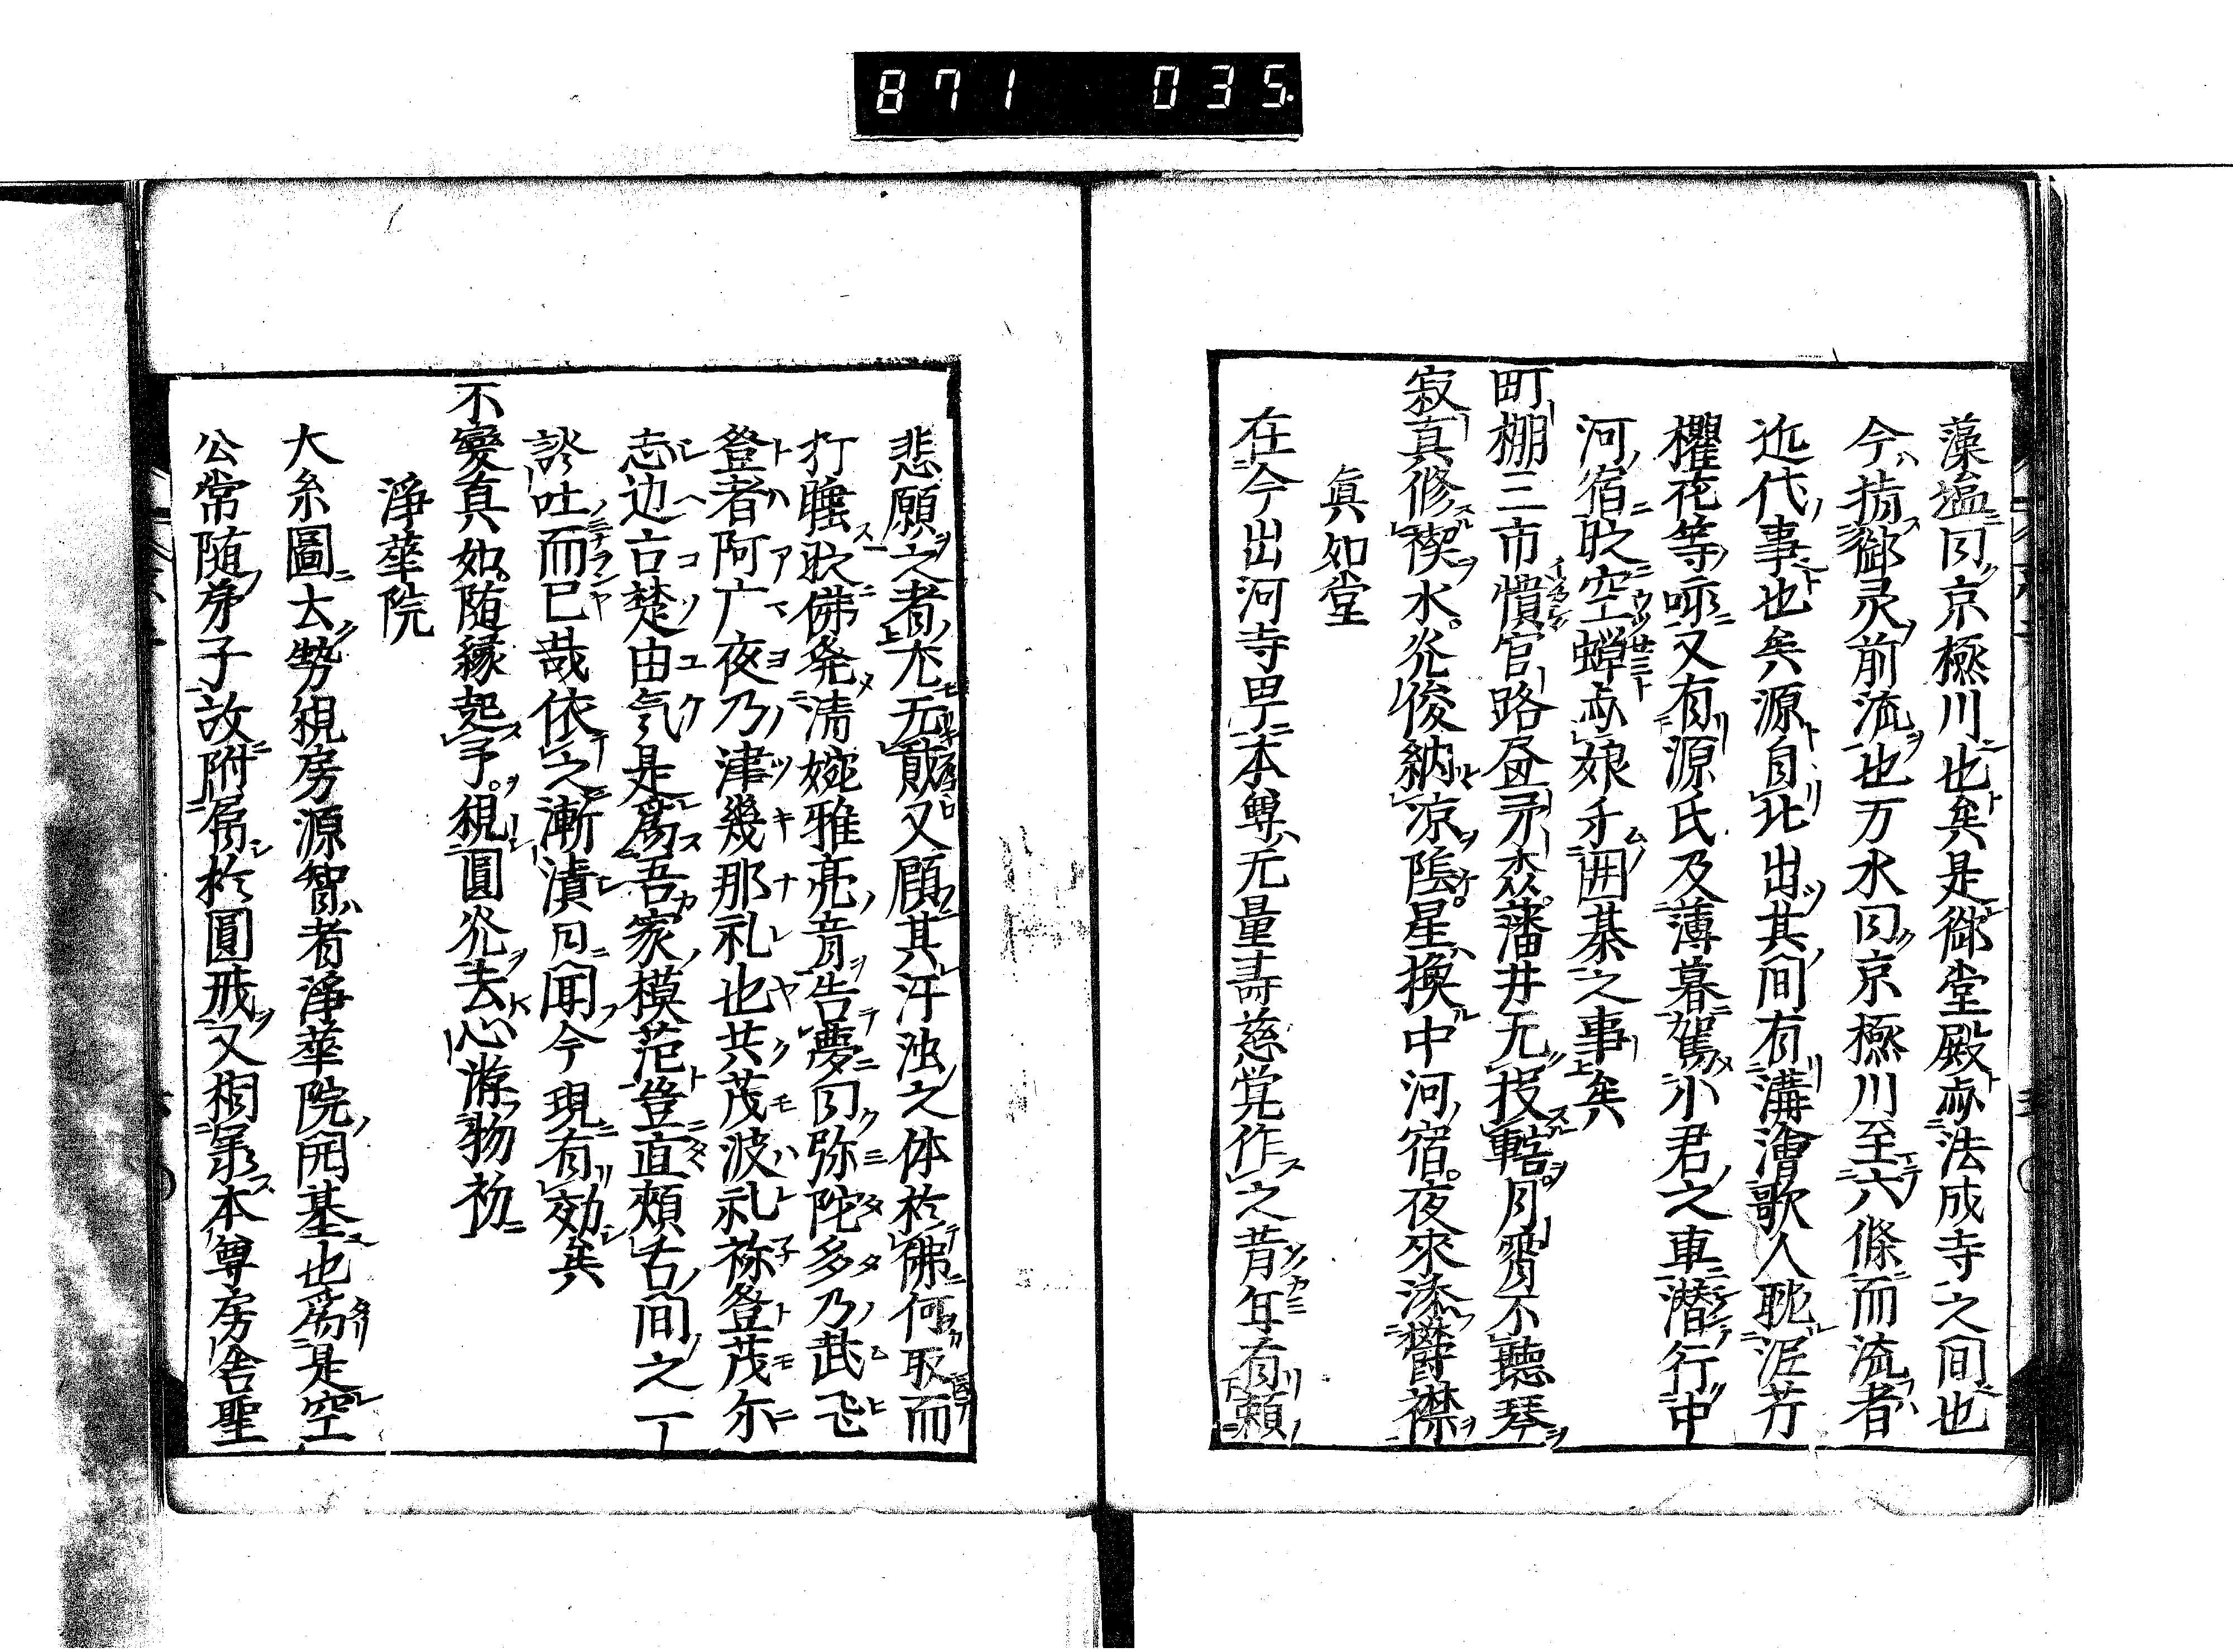 871 035.
藻塩曰京極川也矣是御堂殿亦法成寺之間也
今指御灵前流也万水曰京極川至六條而流者
近代事也矣源自北出其間有溝澮歌人耽泥芹
櫂花等咏又有源氏及薄暮駕小君之車潜行中
河宿㪽空蟬亦娘子囲碁之事矣
町棚三市憒官路昼
潘井无投轄月宵不聽琴
寂真修禊水俊納凉陰星換中河宿夜來添欝襟
眞如堂
在今出河寺甼本尊无量壽慈覚作之昔年有頼
悲願之者尤无貮又顧其汗浊之体於佛何取而
打睡㪽佛発清婉雅亮音告夢曰弥陀多乃武
登者阿广夜乃津幾那礼也共茂波礼祢登茂尓
志边古楚由気是爲吾家模范登直頬舌間之一
吐而已哉依之漸漬曰聞今現有効矣
不變真如随縁起予視圓去心游物初
淨華院
大系圖大勢親房源智者淨華院開基也爲是空
公常随弟子故附属於圓戒又相承本尊房舎聖